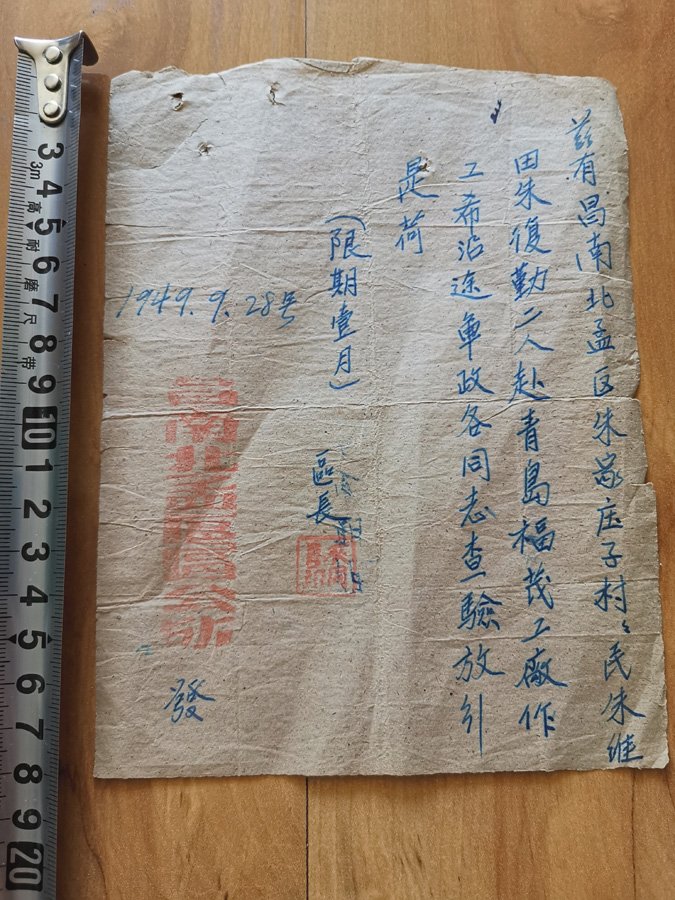 兹有昌南北孟区朱家庄子村〻民朱维
田朱復勤二人赴青島福茂工廠作
工希沿途軍政各同志查驗放引
是荷
(限期壹月)
區長
1949.9.28号
昌南北孟區公所
發
3m
高耐磨尺带
3 4 5 6 7 8 9 10 1 2 3 4 5 6 7 8 9 20